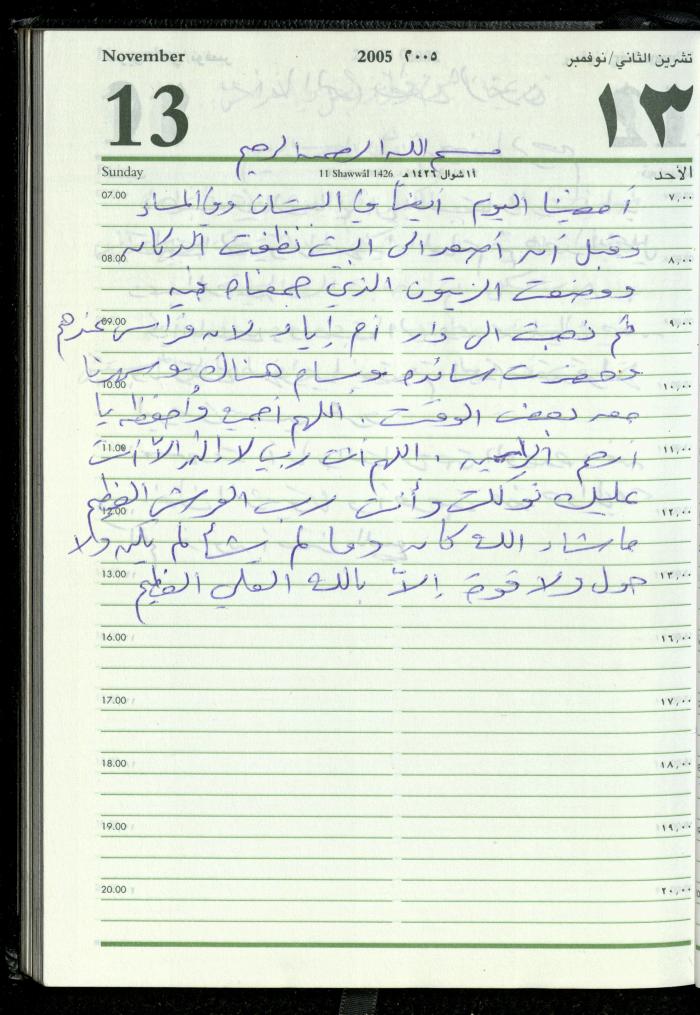 November 2005 ٢٠٠٥ تشرين الثاني/نوفمبر
13 ١٣
بسم الله الرحمن الرحيم
Sunday 11 Shawwál 1426 ١١ شوال ١٤٢٦ هـ الأحد
07.00 أمضينا اليوم أيضاً في البستان وفي المساء ٧,٠٠
وقبل أن أصعد الى البيت نظفت الدكان
08.00 ٨,٠٠
ووضعت الزيتون الذي جمعناه فيه
09.00 ثم ذهبت الى دار أم إياد لان فراس عندهم ٩,٠٠
وحضرت سائده وسام هناك وسهرنا
10.00 ١٠,٠٠
معه بعض الوقت . اللهم احمه وأحفظه يا
11.00 أرحم الراحمين . اللهم أنت ربي لا إله إلا أنت ١١,٠٠
عليك توكلت وأنت رب العرش العظيم
12.00 ١٢,٠٠
ما شاء الله كان وما لم يشأ لم يكن ولا
13.00 حول ولا قوة إلاّ بالله العلي العظيم ١٣,٠٠
16.00 ١٦,٠٠
17.00 ١٧,٠٠
18.00 ١٨,٠٠
19.00 ١٩,٠٠
20.00 ٢٠,٠٠